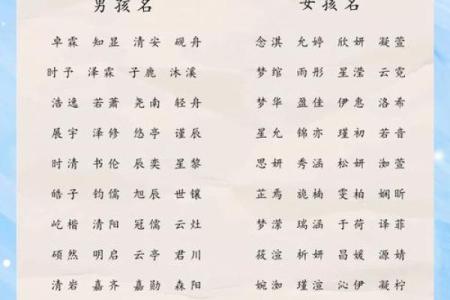 男孩名 女孩名
卓霖 知显 清安 砚舟 念淇 允婷 欣妍 凝萱
时予 泽霖 子鹿 沐溪 梦绾 雨彤 星滢 云霓
浩逸 若萧 尧南 轻舟 梦华 盈佳 伊惠 洛希
展宇 泽修 悠亭 谨辰 星允 锦亦 瑾初 若音
时清 书伦 辰奕 星黎 思妍 秀涵 松妍 洳萱
皓子 钧儒 旭辰 世镶 芷焉 旎楠 雯柏 娴昕
屹楷 清阳 冠儒 云灶 梦潆 瑞涵 于荷 译菲
硕然 明启 云亭 君川 筱渲 析妍 昌媛 源婧
清岩 嘉齐 嘉勋 森阳 婉洳 瑾渲 沁伊 凝柠